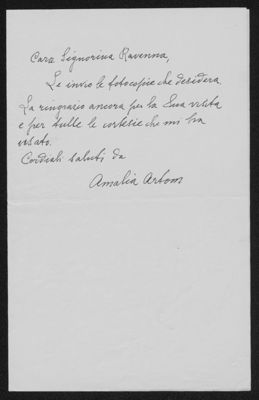 Cara Signorina Ravenna,
Le invio le fotocopie che desidera.
La ringrazio ancora per la Sua visita
e per tutte le cortesie che mi ha
usato.
Cordiali saluti da
Amalia Artom